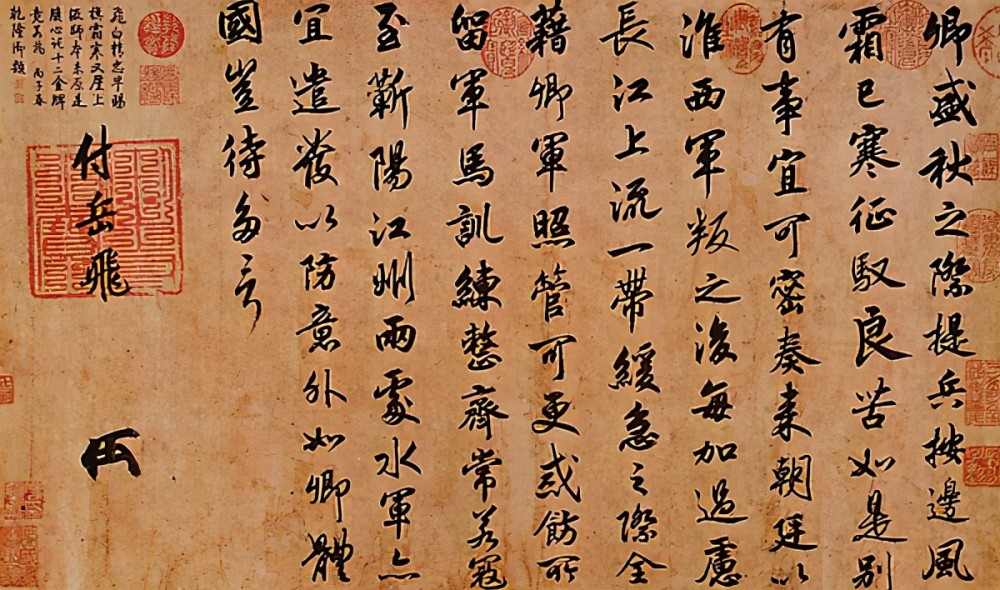 卿盛秋之際提兵按邊風
霜已寒征馭良苦如是別
有事宜可密奏來朝廷以
淮西軍叛之後每加過慮
長江上流一帶緩急之際全
藉卿軍照管可更戒飭所
留軍馬訓練整齊常若寇
至蘄陽江州兩處水軍亦
宜遣發以防意外如卿體
國豈待多言
付岳飛
飛白精忠早賜
旗霜寒又廑上
師本來原是
腹心託十二金牌
竟若為 丙子春
乾隆御題